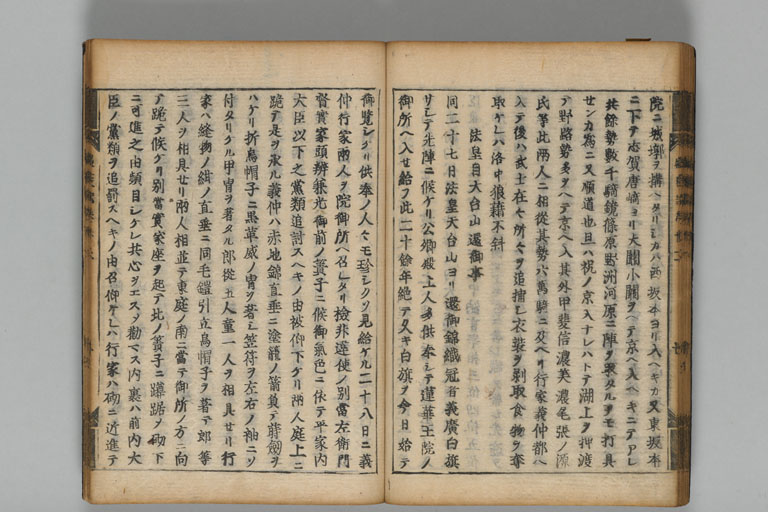 院ニ城墎ヲ構ヘタリシカハ西坂本ヨリ入ヘキカ又東坂本
ニ下テ志賀唐崎ヨリ大關小關ヲヘテ京ヘ入ヘキニテアレ
共餘勢數千騎鏡篠原野洲河原ニ陣ヲ取タルヲモ打具
センカ為ニ又順道也且ハ祝ノ京入ナレハトテ湖上ヲ押渡
テ野路勢多ヲヘテ京ヘ入其外甲斐信濃美濃尾張ノ源
氏等此兩人ニ相從其勢六萬騎ニ及ヘリ行家義仲都ヘ
入テ後ハ武士在々所々ヲ追捕シ衣裳ヲ剥取食物ヲ奪
取ケレハ洛中狼藉不斜
法皇自天台山還御事
同二十七日法皇天台山ヨリ還御錦織冠者義廣白旗
サシテ先陣ニ候ケリ公卿殿上人多供奉シテ蓮華王院ノ
御所ヘ入セ給フ此二十餘年絶テ久キ白旗ヲ今日始テ
御覽シケリ供奉ノ人々モ珍シクソ見給ケル二十八日ニ義
仲行家兩人ヲ院御所ヘ召レタリ檢非違使ノ別當左衛門
督實家頭辨兼光御前ノ簀子ニ候御氣色ニ依テ平家内
大臣以下之黨類追討スヘキノ由被仰下ケリ兩人庭上ニ
跪テ是ヲ承ル義仲ハ赤地錦直垂ニ塗籠ノ箭負テ蒔劔ヲ
ハケリ折烏帽子ニ黒革威ノ冑ヲ著シ笠符ヲ左右ノ袖ニソ
付タリケル甲冑ヲ著タル郎從五人童一人ヲ相具セリ行
家ハ縫物ノ紺ノ直垂ニ同毛鎧引立烏帽子ヲ著テ郎等
三人ヲ相具セリ兩人相並テ東庭ノ南ニ當テ御所ノ方ニ向
テ跪テ候ケリ別當實家座ヲ起テ北ノ簀子ニ蹲踞ヲ砌下
ニ可進之由頻目シケレ共心ヲエスソ勸ヘス内裏ハ前内大
臣ノ黨類ヲ追罰スヘキノ由召仰ケレハ行家ハ砌ニ近進テ